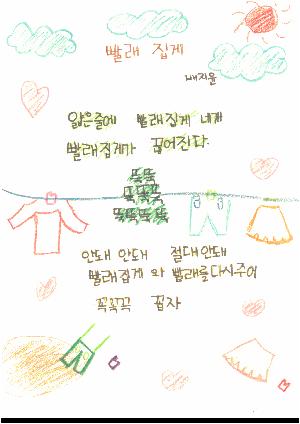 빨래 집게
배지윤
얇은줄에 빨래집게 네개
빨래집게가 끊어진다.
뚝뚝
뚝뚝뚝
뚝뚝뚝뚝
안돼 안돼 절대안돼
빨래집게 와 빨래를다시주어
꼭꼭꼭 꼽자